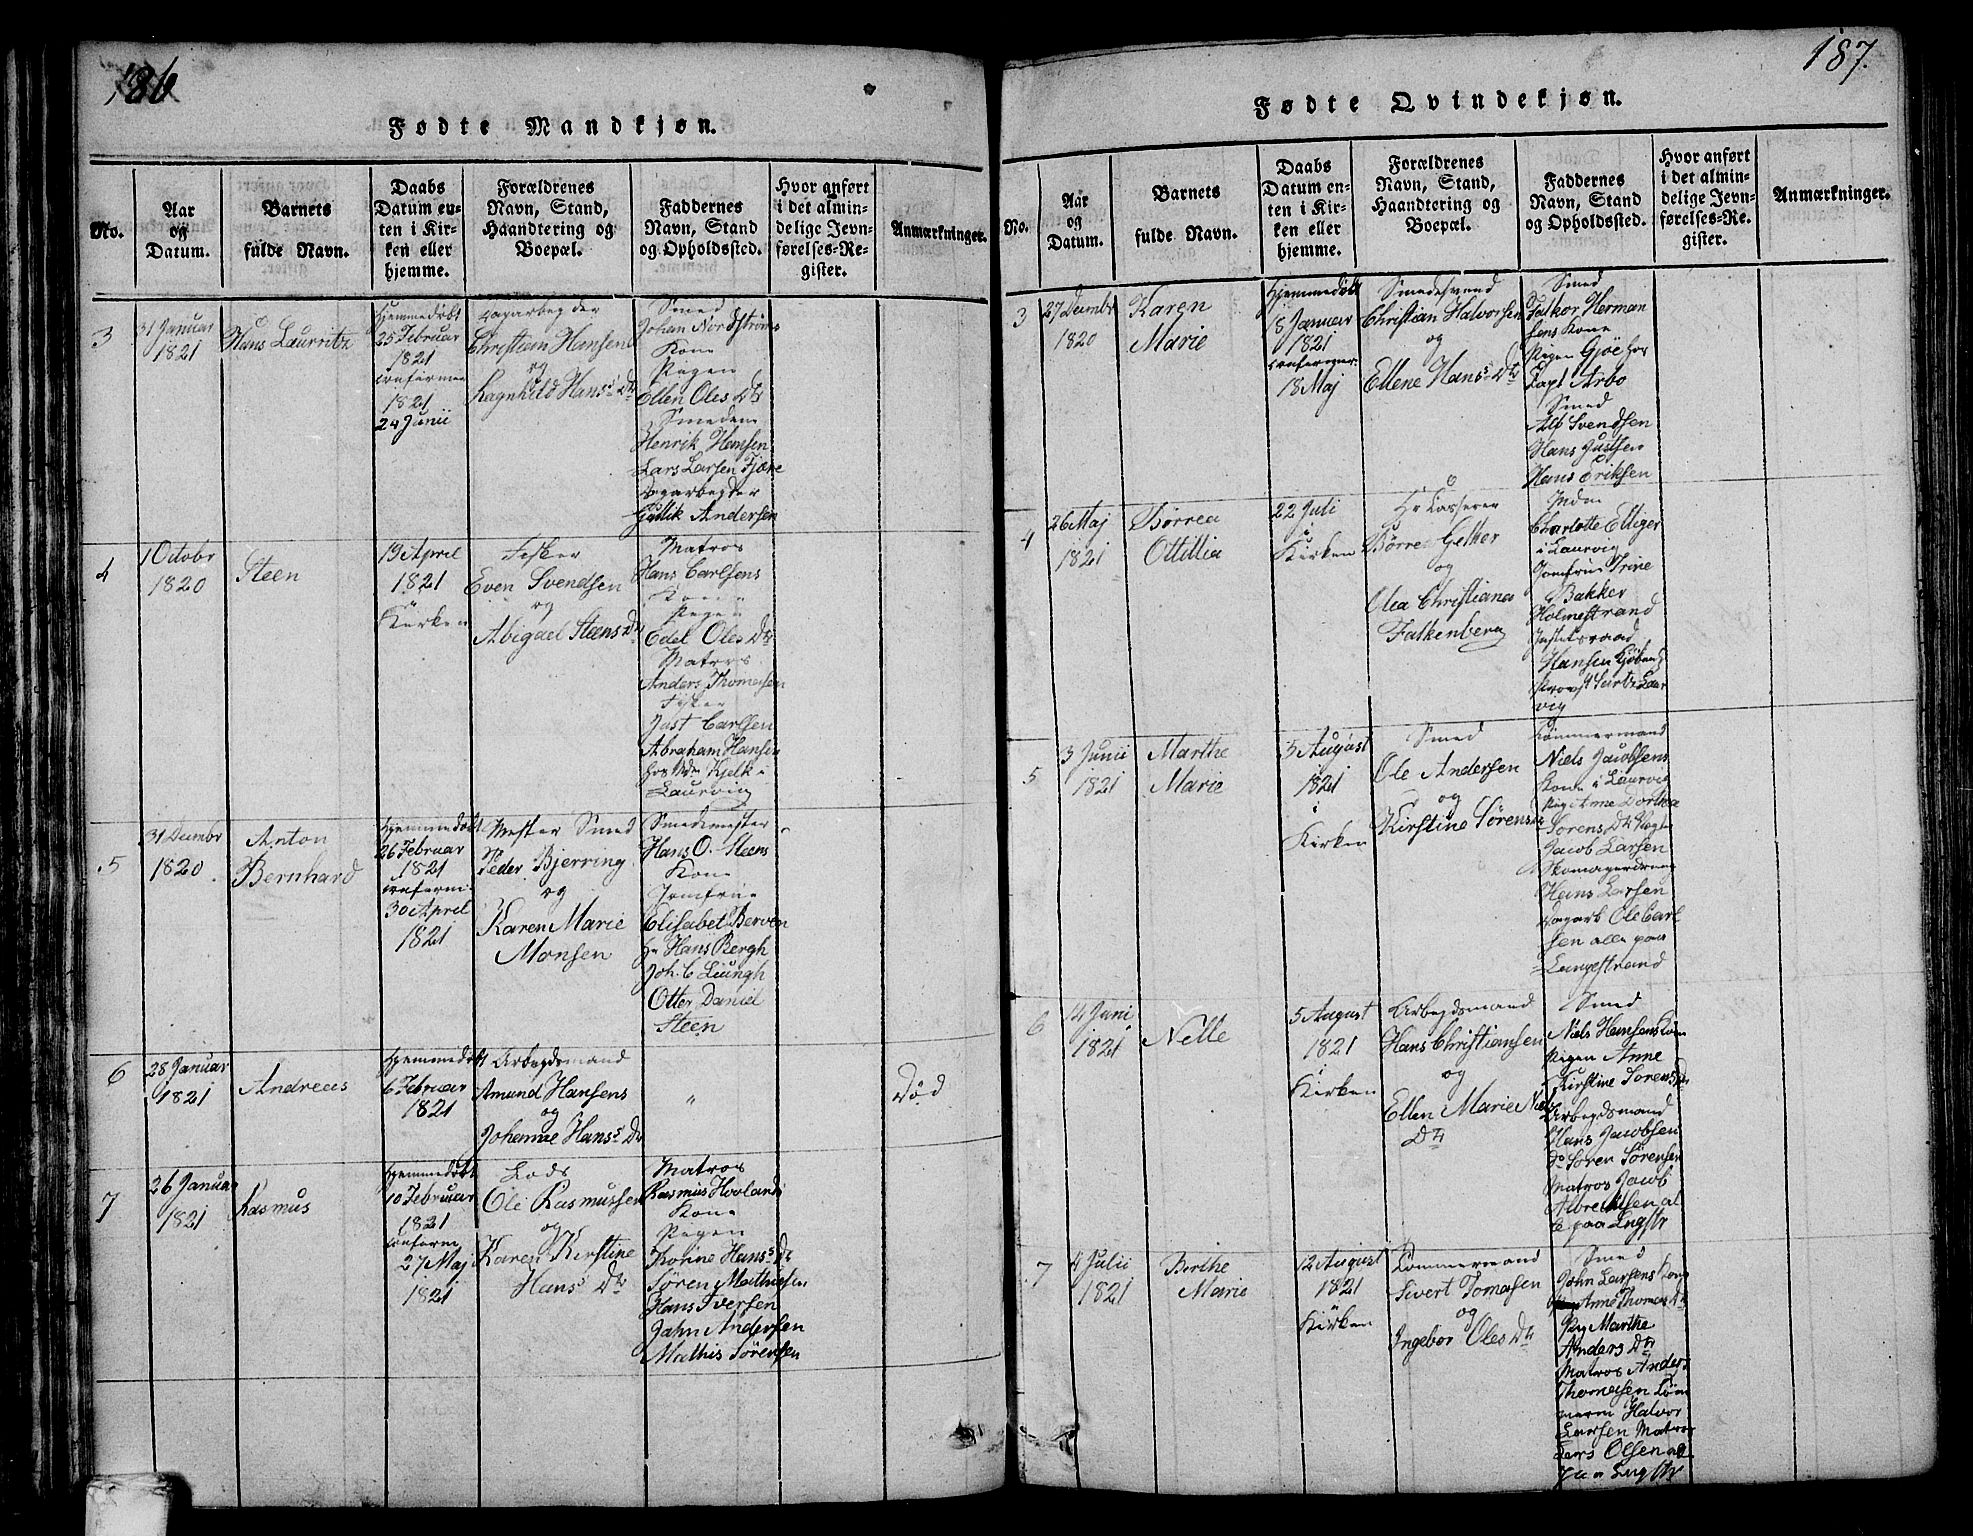 186
Fødte Mandkjøn.
No.
Aar
og
Datum.
Barnets
fulde Navn.
Daabs
Datum en-
ten i Kir-
ken eller
hjemme.
Forældrenes
Navn, Stand,
Haandtering og
Boepæl.
Faddernes
Navn, Stand
og Opholdssted.
Hvor anført
i det almin-
delige Jevn-
førelses-Re-
gister.
Anmærkninger.
3
31 Januar
1821
Hans Laurritz
Hjemmedøbt
25 Februar
1821
confermer
1821
24 Junii
Dagarbeyder
Christian Hansen
og
Ragnhild Hans⁵ Dtr
Smed
Johan Nordstrøms
Kone
Pigen
Ellen Oles Dtr
Smedene
Henrik Hansen
Lars Larsen Fjære
Dagarbeyder
Gullik Andersen
4
1 Octobr
1820
Steen
19 April
1821
i
Kirken
Fisker
Even Svendsen
og
Abigael Steens Dtr
Matros
Hans Carlsens
Kone
Pigen
Edel Oles Dtr
Matros
Anders Thomesen
Fisker
Jost Carlsen
Abraham Hansen
hos Kjelk i
Laurvig
5
31 Decmbr
1820.
Anton
Bernhard
Hjemmedøbt
26 Februar
1821
conferm
30 April
1821
Mester Smed
Peder Bjerring
og
Karen Marie
Monsen
Smedemester
Hans O. Steens
Kone
Jomfrue
Elisabet Berven
Hr Hans Bergh
Joh. C Liungh
Otter Daniel
Steen
6
28 Januar
1821
Andreas
Hjemmedøbt
6 Februar
1821
Arbeydsmand
Amund Hansens
og
Johanne Hans⁵ Dtr
"
Død
7
26 Januar
1821
Rasmus
Hjemmedøbt
10 Februar
1821
conferm
27 Maj
1821
Lods
Ole Rasmussen
og
Karen Kirstine
Hans⁵ Dtr
Matros
Rasmus Hovlands
Kone
Pigen
Thorine Hans⁵ Dtr
Søren Mathiesen
Hans Iversen
Jahn Andersen
Mathis Sørensen
187.
Fødte Qvindekjøn.
No.
Aar
og
Datum.
Barnets
fulde Navn.
Daabs
Datum en-
ten i Kir-
ken eller
hjemme.
Forældrenes
Navn, Stand,
Haandtering og
Boepæl.
Faddernes
Navn, Stand
og Opholdssted.
Hvor anført
i det almin-
delige Jevn-
førelses-Re-
gister.
Anmærkninger.
3
27 Decmbr
1820
Karen
Marie
Hjemmedøbt
18 Januar
1821
confermer
18 Maj
Smedesvend
Christian Halvorsen
og
Ellene Hans⁵ Dtr
Smed
Falkor Herman
sens Kone
Pigen Gjøe hos
Capt Arbo
Smed
Alf Svendsen
Hans Justsen
Hans Eriksen
4
26 Maj
1821
Børrea
Ottillia
22 Juli
i
Kirken
Hr Casserer
Børre Getker
og
Olea Christiana
Falkenberg
Charlotte Elliger
i Laurvig
Jomfrue Trine
Bakker
Holmestrand
Justitsraad
Hansen Kjøbenh
Provst Laur
vig
5
3 Junii
1821
Marthe
Marie
5 August
1821
i
Kirken
Smed
Ole Andersen
og
Kirstine Sørens Dtr
Tømmermand
Niels Jacobsens
Kone i Laurvig
Pig Anne Dorthea
Sørens Dtr
Jacob Larsen
Skomagerdreng
Hans Larsen
Dagarb Ole Carl
sen alle paa
Langestrand
6
14 Juni
1821
Nelle
5 August
1821
i
Kirken
Arbeydsmand
Hans Christiansen
og
Ellen Marie Niels
Dtr
Smed
Niels Hansens Kone
Pigen Anne
Kirstine Sørens Dtr
Arbeydsmand
Hans Jacobsen
Do Søren Sørensen
Matros Jacob
Albrechtsen al
le paa Lngstr
7
4 Julii
1821
Birthe
Marie
12 August
1821
i
Kirken
Tømmermand
Sivert Tomesen
og
Ingebor Oles Dtr
Smed
John Larsens Kone
Anne Thomes Dtr
Pig Marthe
Anders Dtr
Matros Anders
Thomesen Tøm
merm Halvor
Larsen Matros
Lars Olsen al
paa Lngstr